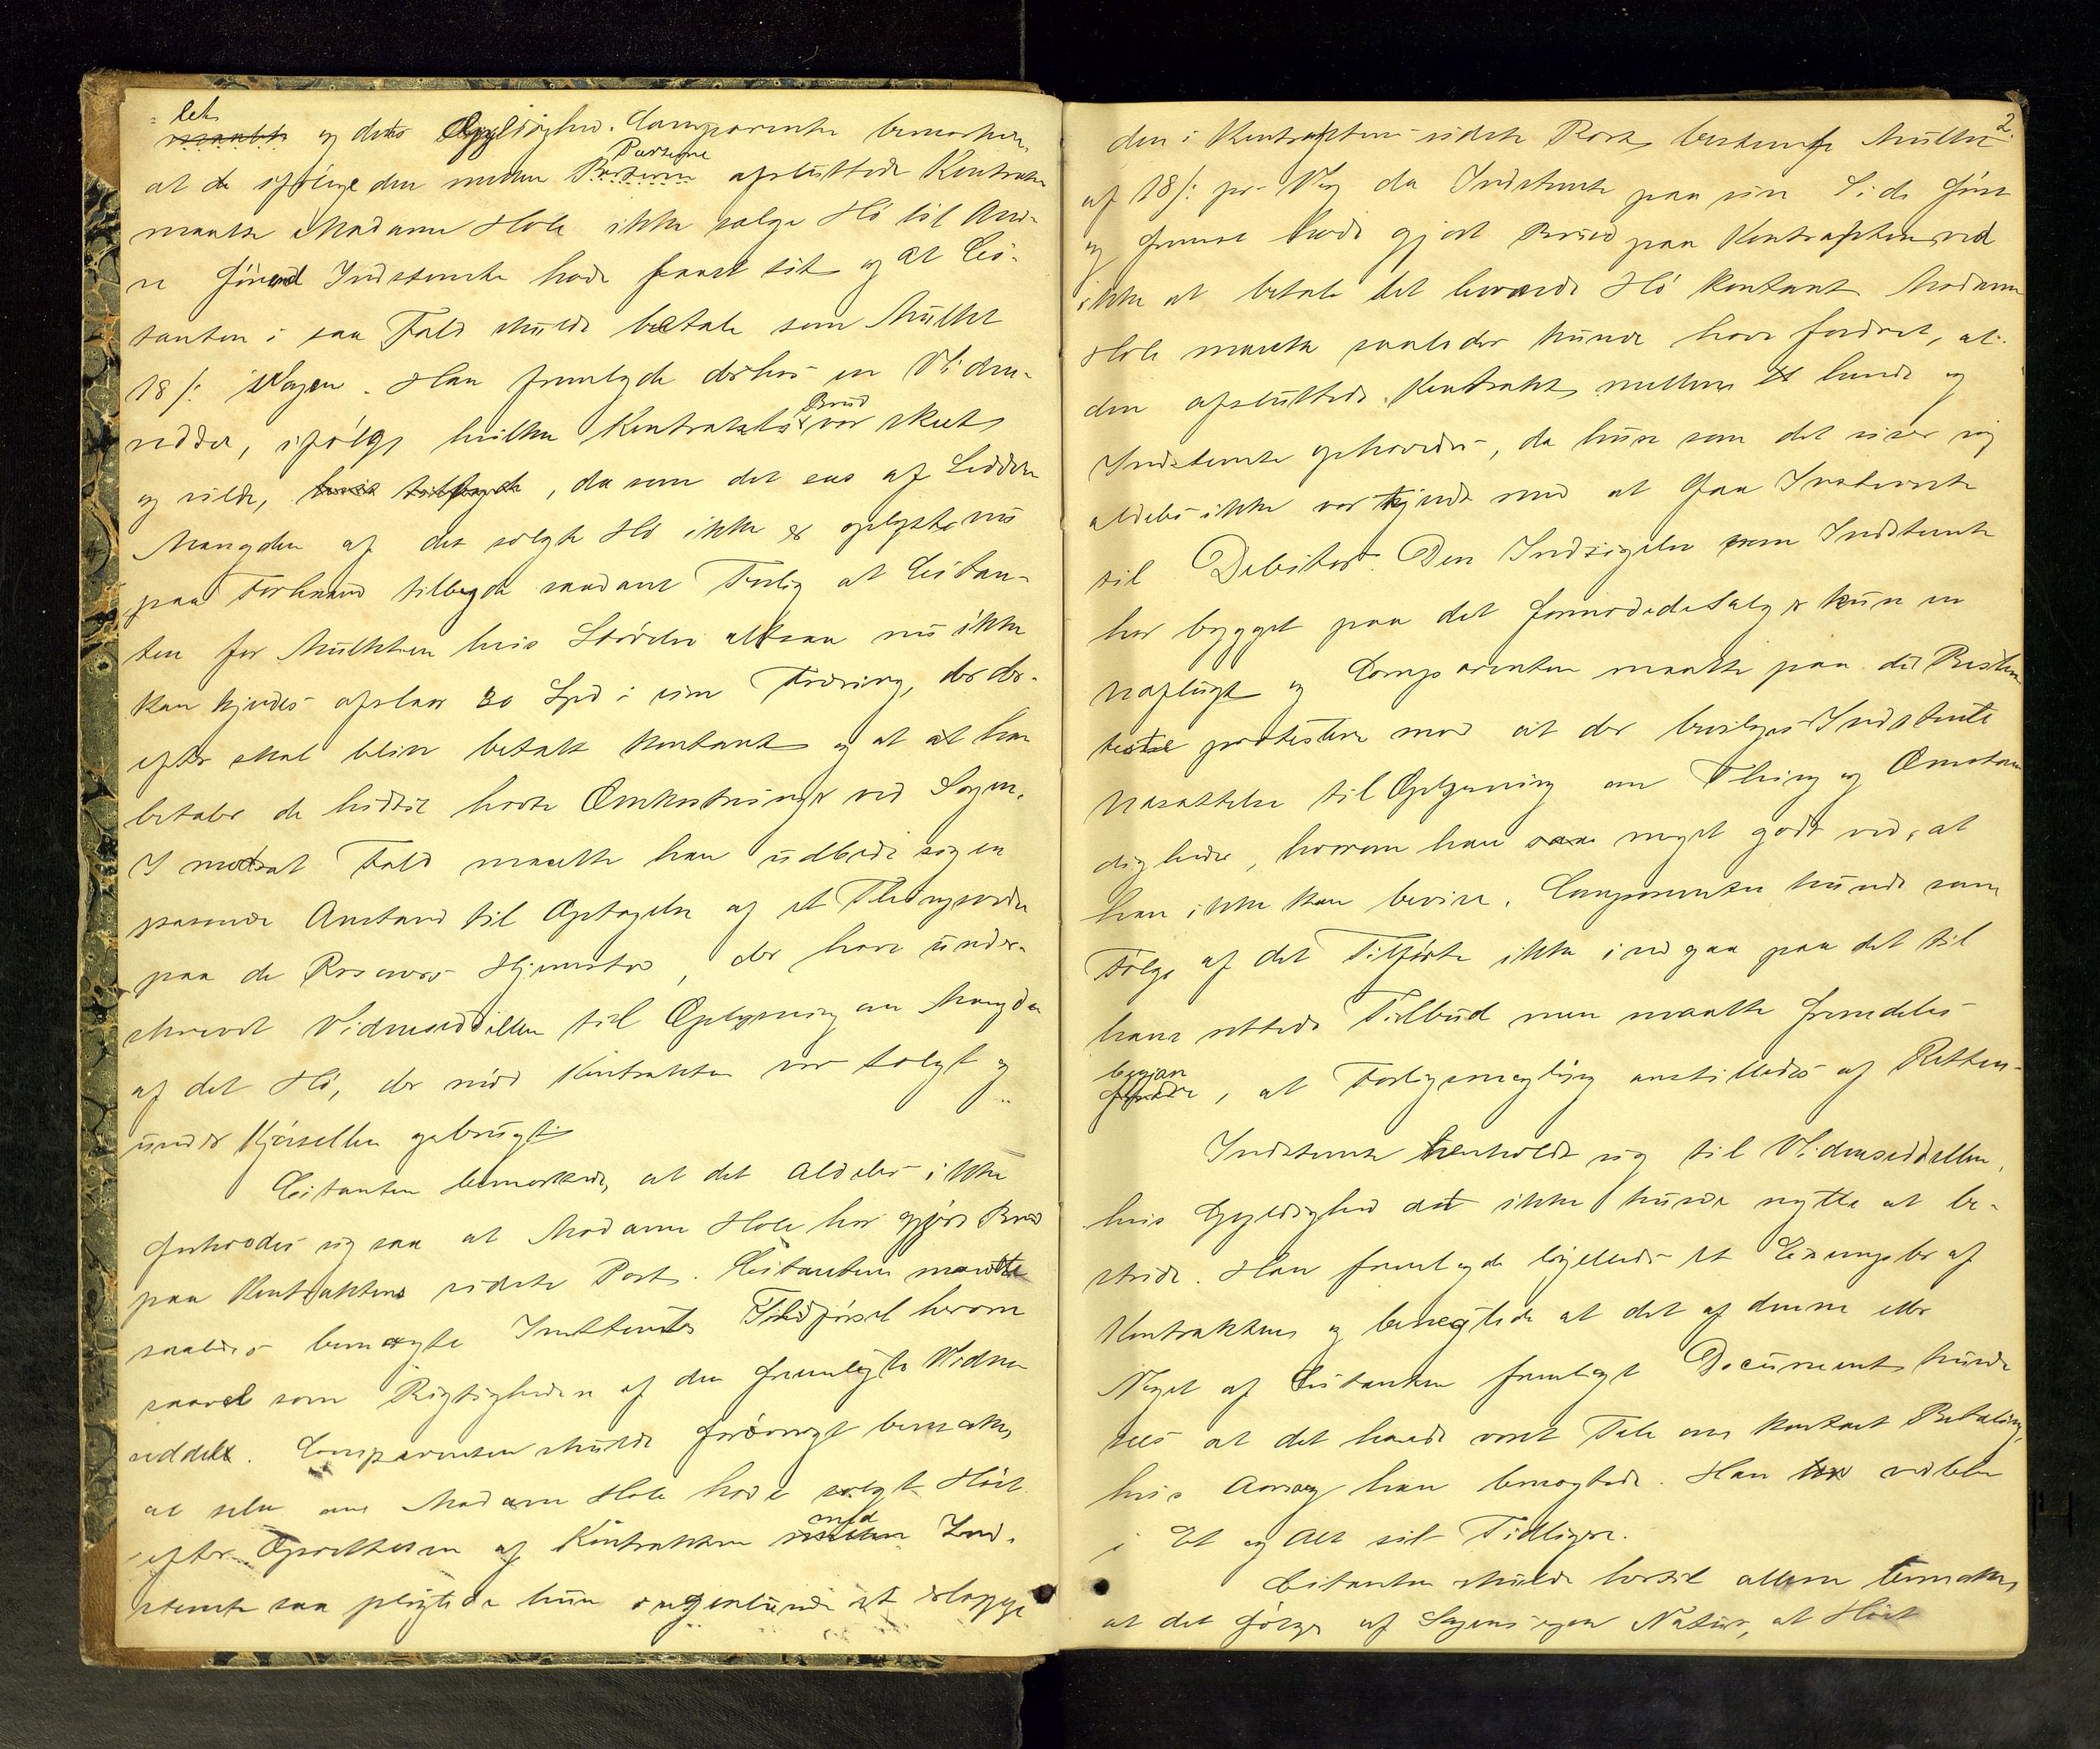 let
og dets Gyldighed. Comparenten bemærkede,
at de ifølge den mellem Parterne afsluttede Kontrakt
maatte Madame Hole ikke sælge Hø til And-
re førend Indstevnte havde faaet sit og at Ci-
tanten i saa Fald skulde betale som Mulkt
18 /: Vogen. Han fremlagde derhos en Vidne-
seddel, ifølge hvilken Kontrakts Brud var skeet
og vilde, , da som det sees af Seddelen
Mængden af det solgte Hø ikke er oplyst nu
paa Forhaand tilbyde saadant Forlig at Citan-
ten for Mulkten hvis Størrelse altsaa nu ikke
kan kjendes afslaar 20 Spd i sin Fordring, der der-
efter skal blive betalt kontant og at at han
betaler de hidtil havte Omkostninger ved Sagen.
I modsat Fald maatte han udbede sig en
passende Anstand til Optagelse af et Thingsvidne
paa de Personers Hjemsted, der have under-
skrevet Vidneseddelen til Oplysning om Mængden
af det Hø, der mod Kontrakten var solgt og
under Kjørselen opbrugt.
Citanten bemærkede, at det aldeles ikke
forholdes sig saa at Madame Hole har gjort Brud
paa Kontraktens sidste Post. Citanten maatte
saaledes benægte Indstevntes Tilførsel herom
saavel som Rigtigheden af den fremlagte Vidne
seddel. Comparenten skulde forøvrigt bemærke,
at selv om Madame Hole havde solgt Høet
efter Oprettelsen af Kontrakten med Ind-
stevnte saa pligtede hun ingenlunde at erlægge
2.
den i Kontraktens sidste Post bestemte Mulkt
af 18 /: pr. Vog da Indstevnte paa sin Side først
og fremst havde gjort Brud paa Kontrakten ved
ikke at betale det leverede Hø kontant. Madame
Hole maatte saaledes kunne have fordret, at
den afsluttede Kontrakt mellem hende og
Indstevnte ophævedes, da hun som det viser sig
aldeles ikke var tjent med at faa Indstevnte
til Debitor. Den Indsigelse som Indstevnte
har bygget paa det formodede Salg er kun en
Udflugt og Comparenten maatte paa det Bestem
teste protestere mod at der bevilges Indstevnte
Udsættelse til Oplysning om Thing og Omstæn
digheder, hvorom han saa meget godt ved, at
han ikke kan bevise. Comparenten kunde som
Følge af det Tilførte ikke indgaa paa det til
hans rettede Tilbud men maatte fremdeles
begjære, at Forligsmægling anstilledes af Retten.
Indstevnte henholdt sig til Vidneseddelen,
hvis Gyldighed det ikke kunde nytte at be-
stride. Han fremlagde ligeledes et Exemplar af
Kontrakten og benegtede at det af denne eller
Noget af Citanten fremlagt Document kunde
sees at det havde været Tale om kontant Betaling,
hvis Aarsag han benægtede. Han vedblev
i Et og Alt sit Tidligere.
Citanten skulde hertil alene bemærke,
at det følger af Sagens egen Natur, at Høet